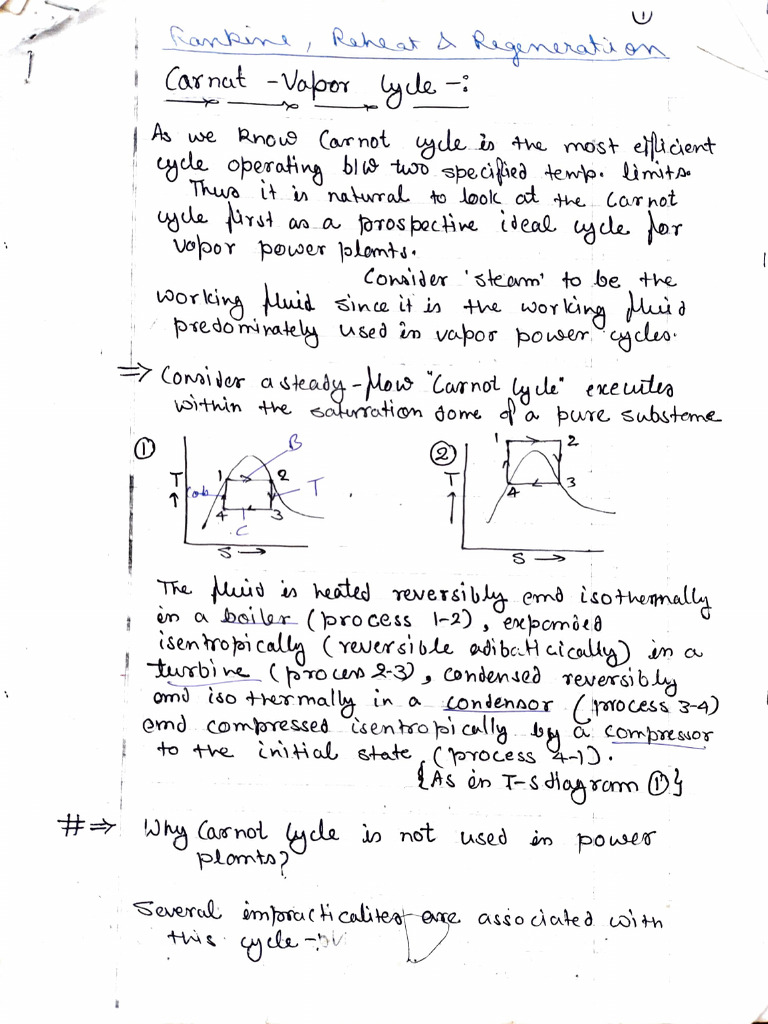 1
Rankine, Reheat & Regeneration
Carnat - Vapor Cycle -:
As we know Carnot cycle is the most efficient
cycle operating b/w two specified temp. limits.
Thus it is natural to look at the Carnot
cycle first as a prospective ideal cycle for
vapor power plants.
Consider 'steam' to be the
working fluid since it is the working fluid
predominately used in vapor power cycles.
⇒ Consider a steady-flow "Carnot Cycle" executes
within the saturration dome of a pure substeme
① T ↑ 1 2 3 4 B T C S →
② T ↑ 1 2 3 4 S →
The fluid is heated reversibly and isothermally
in a boiler (process 1-2), expanded
isentropically (reversible adibatically) in a
turbine (process 2-3), condensed reversibly
and isothermally in a condensor (process 3-4)
and compressed isentropically by a compressor
to the initial state (process 4-1).
{As in T-S diagram ①}
# ⇒ Why Carnot Cycle is not used in power
plants?
Several impracticalites are associated with
this cycle -: